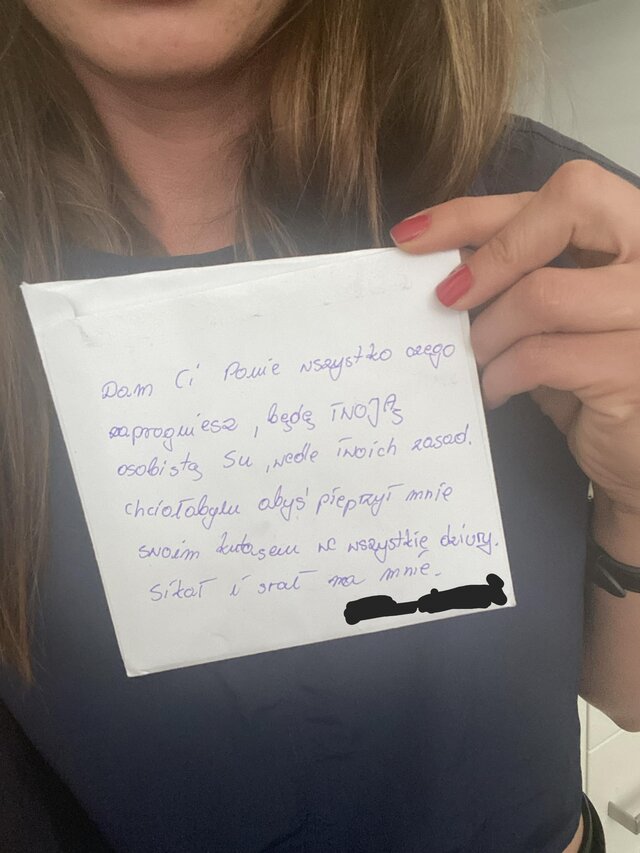 Dam Ci Panie wszystko czego
zapragniesz, będę TWOJĄ
osobistą Su, wedle Twoich zasad.
Chciałabym abyś pieprzył mnie
swoim kutasem we wszystkie dziury.
Sikał i srał na mnie.